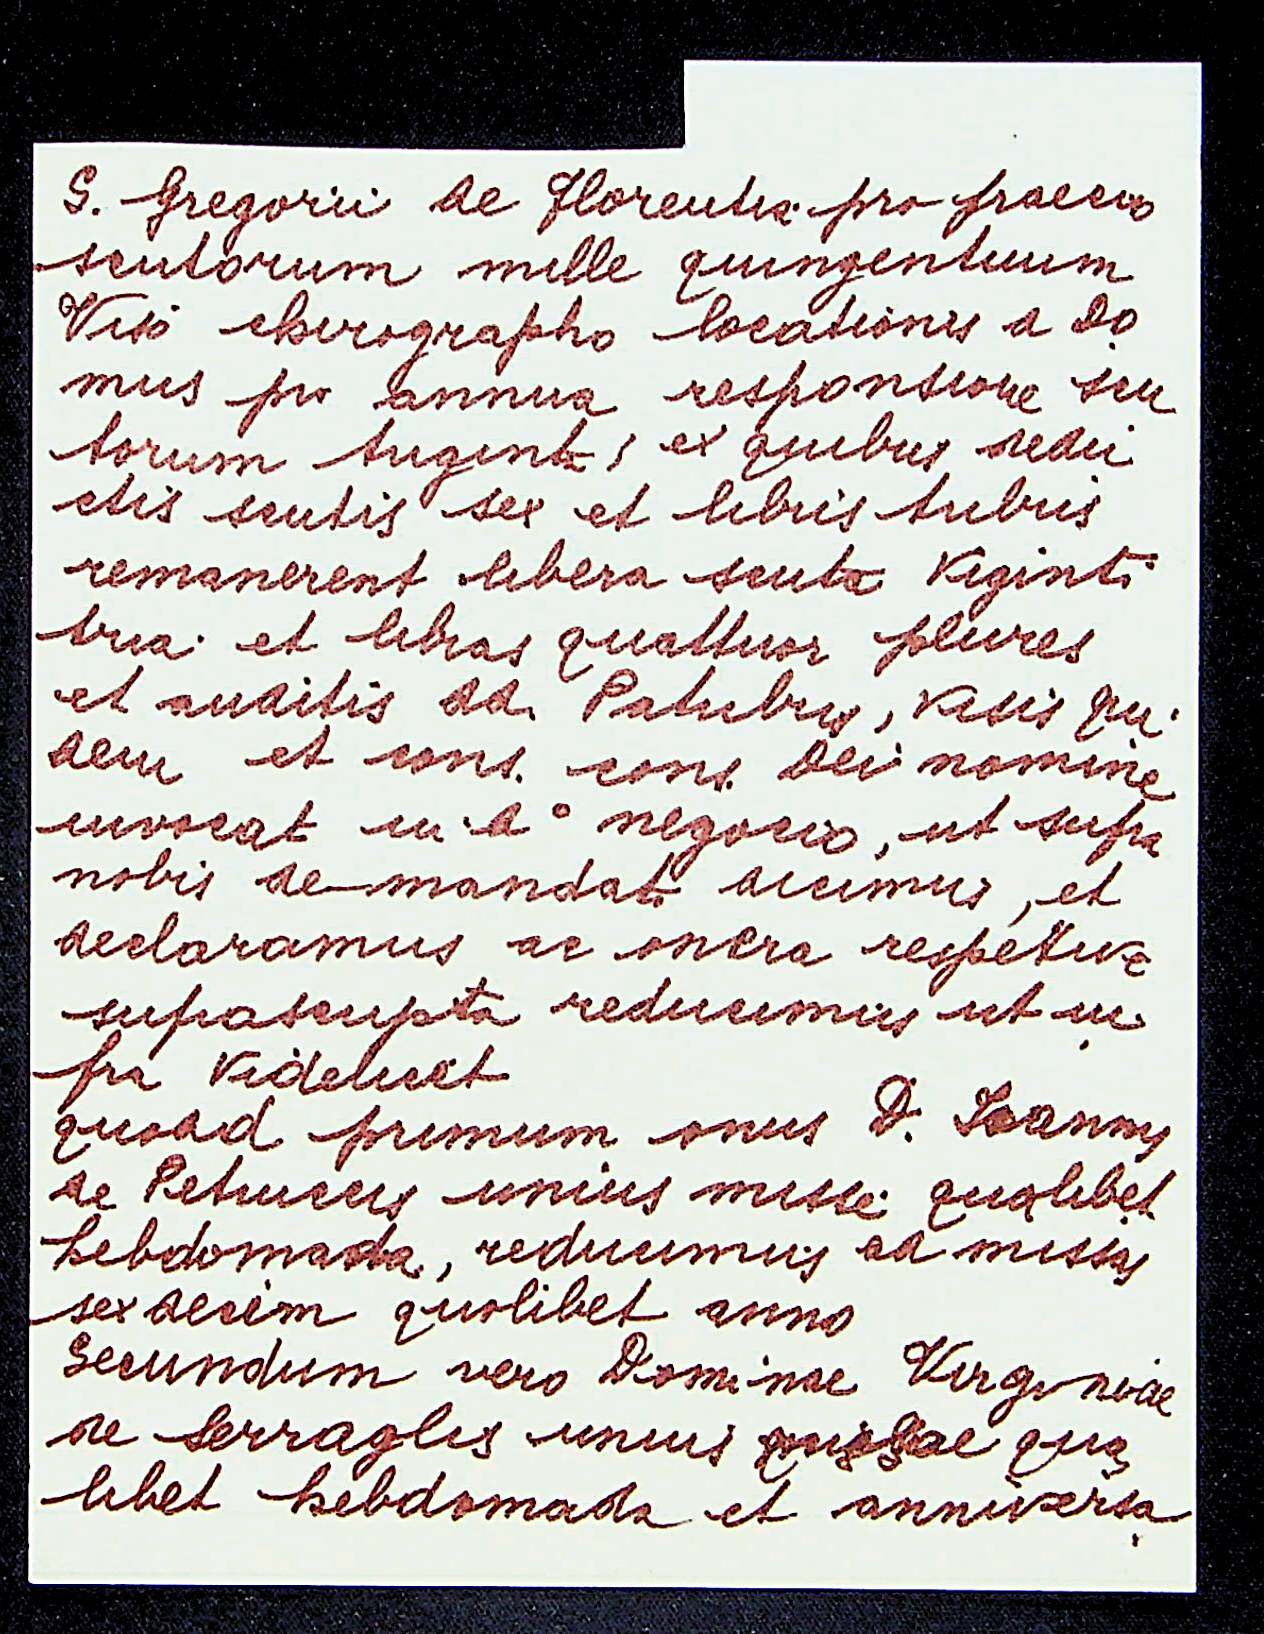 S. Gregorii de Florentia pro praecio
scutorum mille quingentuum
Viso chirographo locationis d Do
mus pro annua responsione scu
torum triginta, ex quibus dedu
ctis scutis sex et libris tribus
remanerent libera scuta Viginti
tria et libras quattuor plures
et auditis dd. Patribus, Visis qui
dem et cons. cons. Dei nomine
invocat in d° negocio, ut supra
nobis demandati dicimus, et
declaramus ac onera respetive
suprascripta reducimus ut in
fra Videlicet
quoad primum onus D. Ioannis
de Petruccis unius misse qualibet
hebdomada, reducimus ad missas
sexdecim quolibet anno
Secundum vero Dominae Virginiae
de Serraglis unius missae qua
libet hebdomada et anniversa